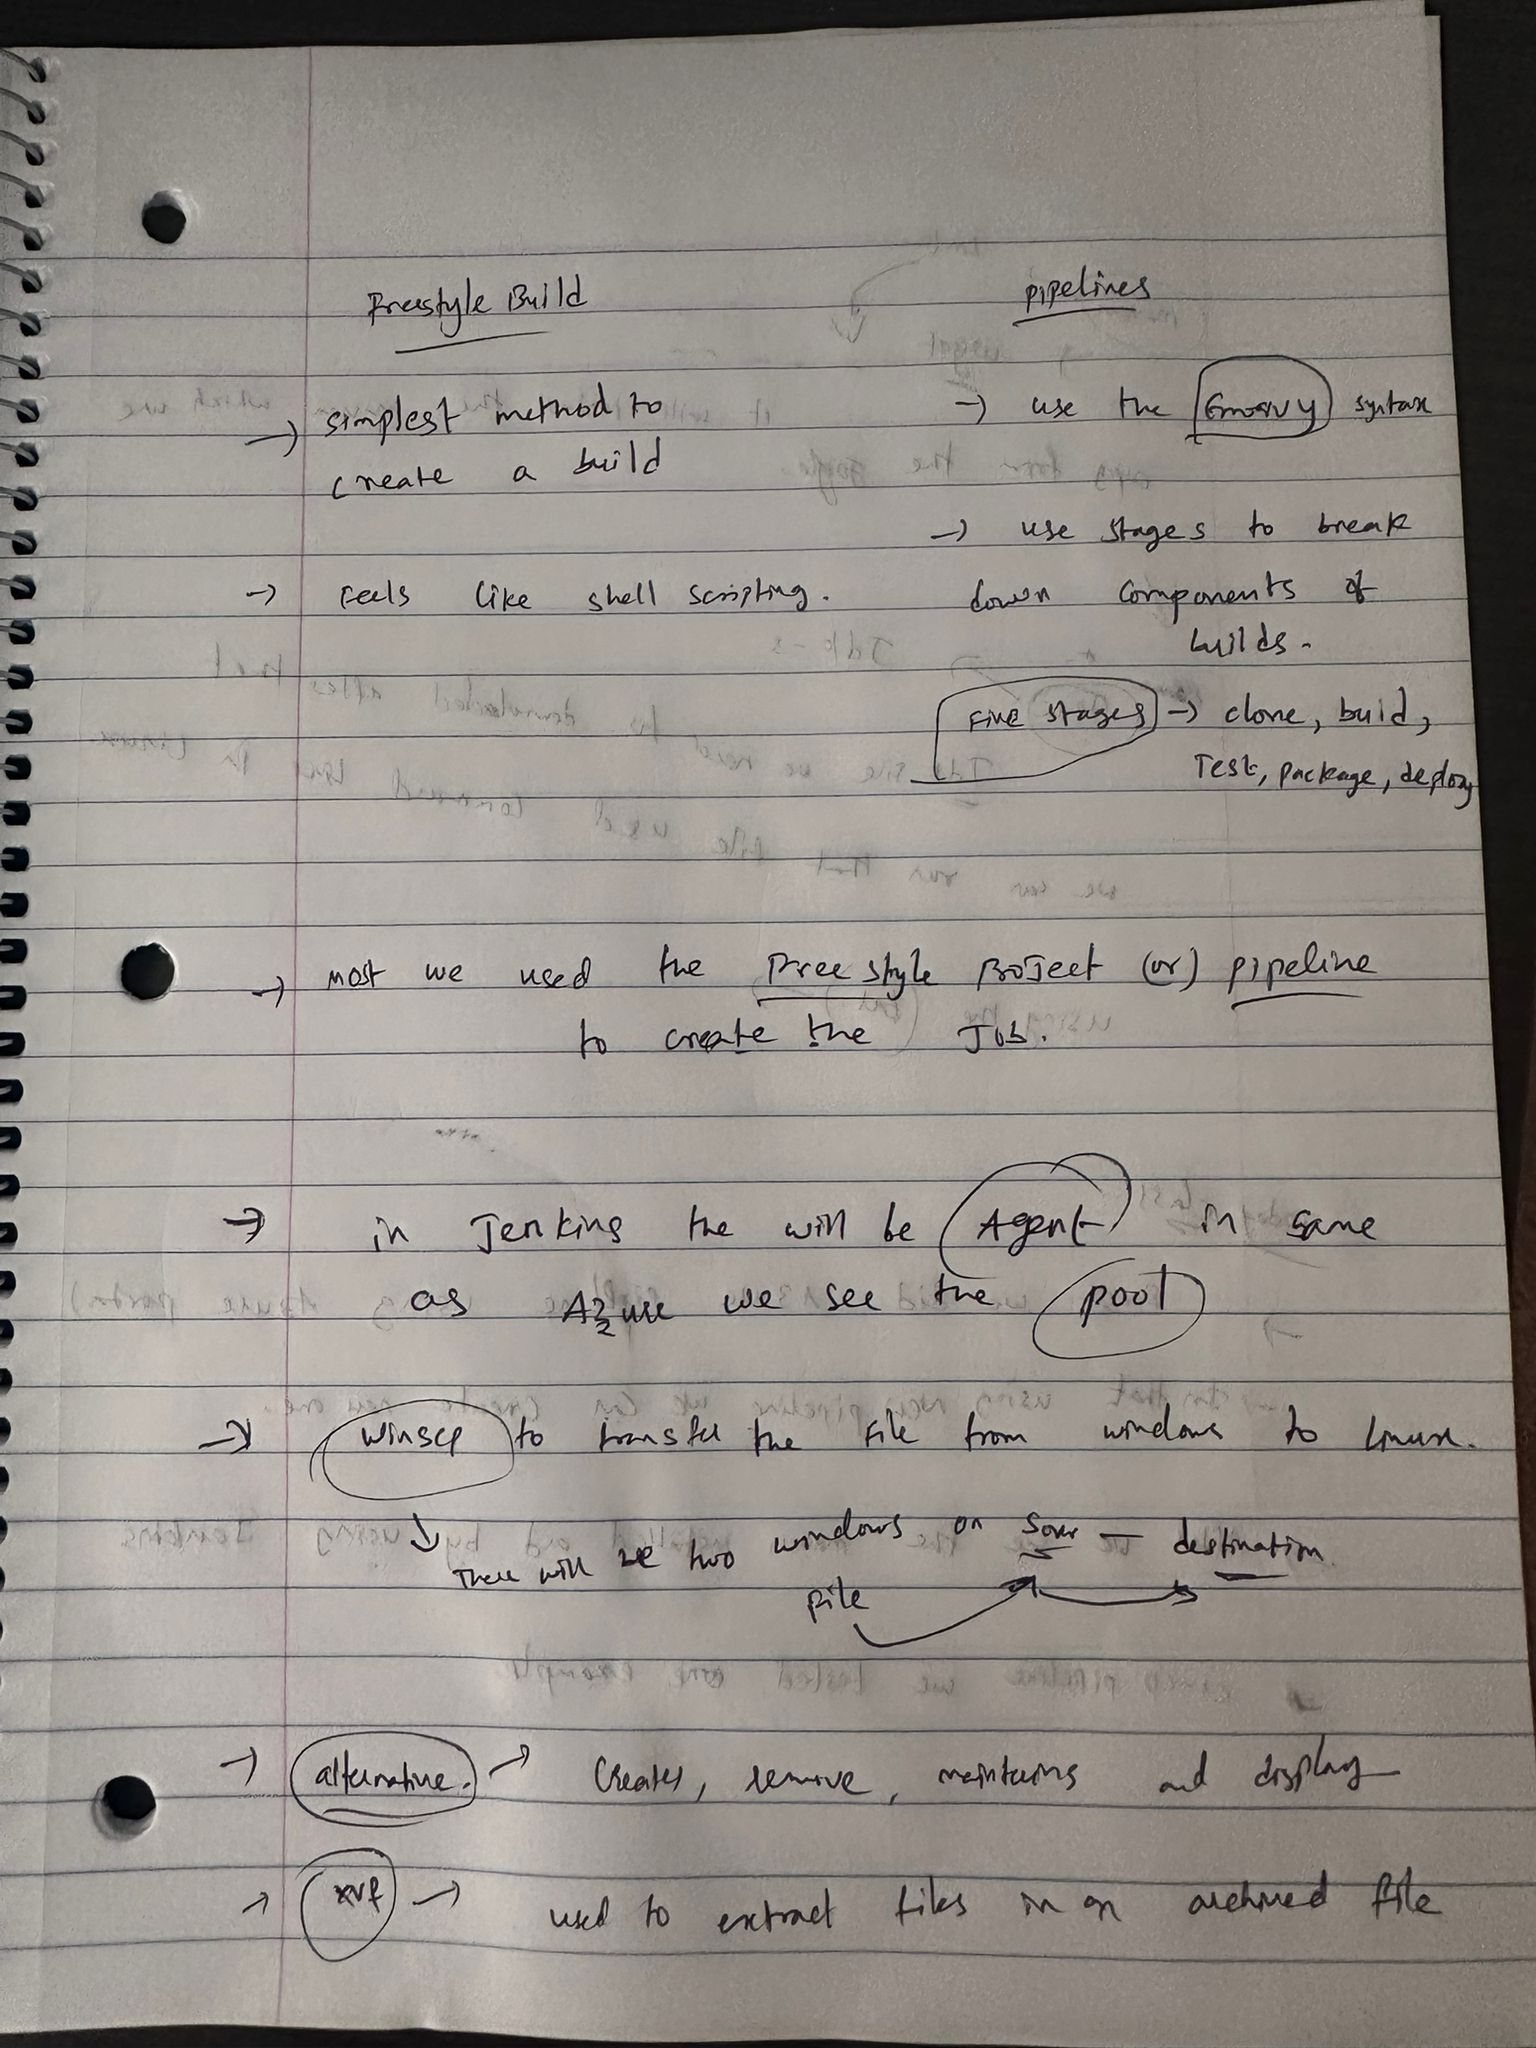 Freestyle Build
pipelines
→ simplest method to
create a build
→ Feels like shell scripting.
→ use the Groovy syntax
→ use stages to break
down components of
builds.
Five stages → clone, build,
Test, package, deploy
→ most we used the Free style project (or) pipeline
to create the Job.
→ in Jenkins the will be Agent in same
as Azure we see the pool
→ winscp to transfer the file from windows to Linux.
↓ There will be two windows on Sour – destination.
file
→ alternative. → Creates, remove, maintains and display
→ xvf → used to extract files in an archived file